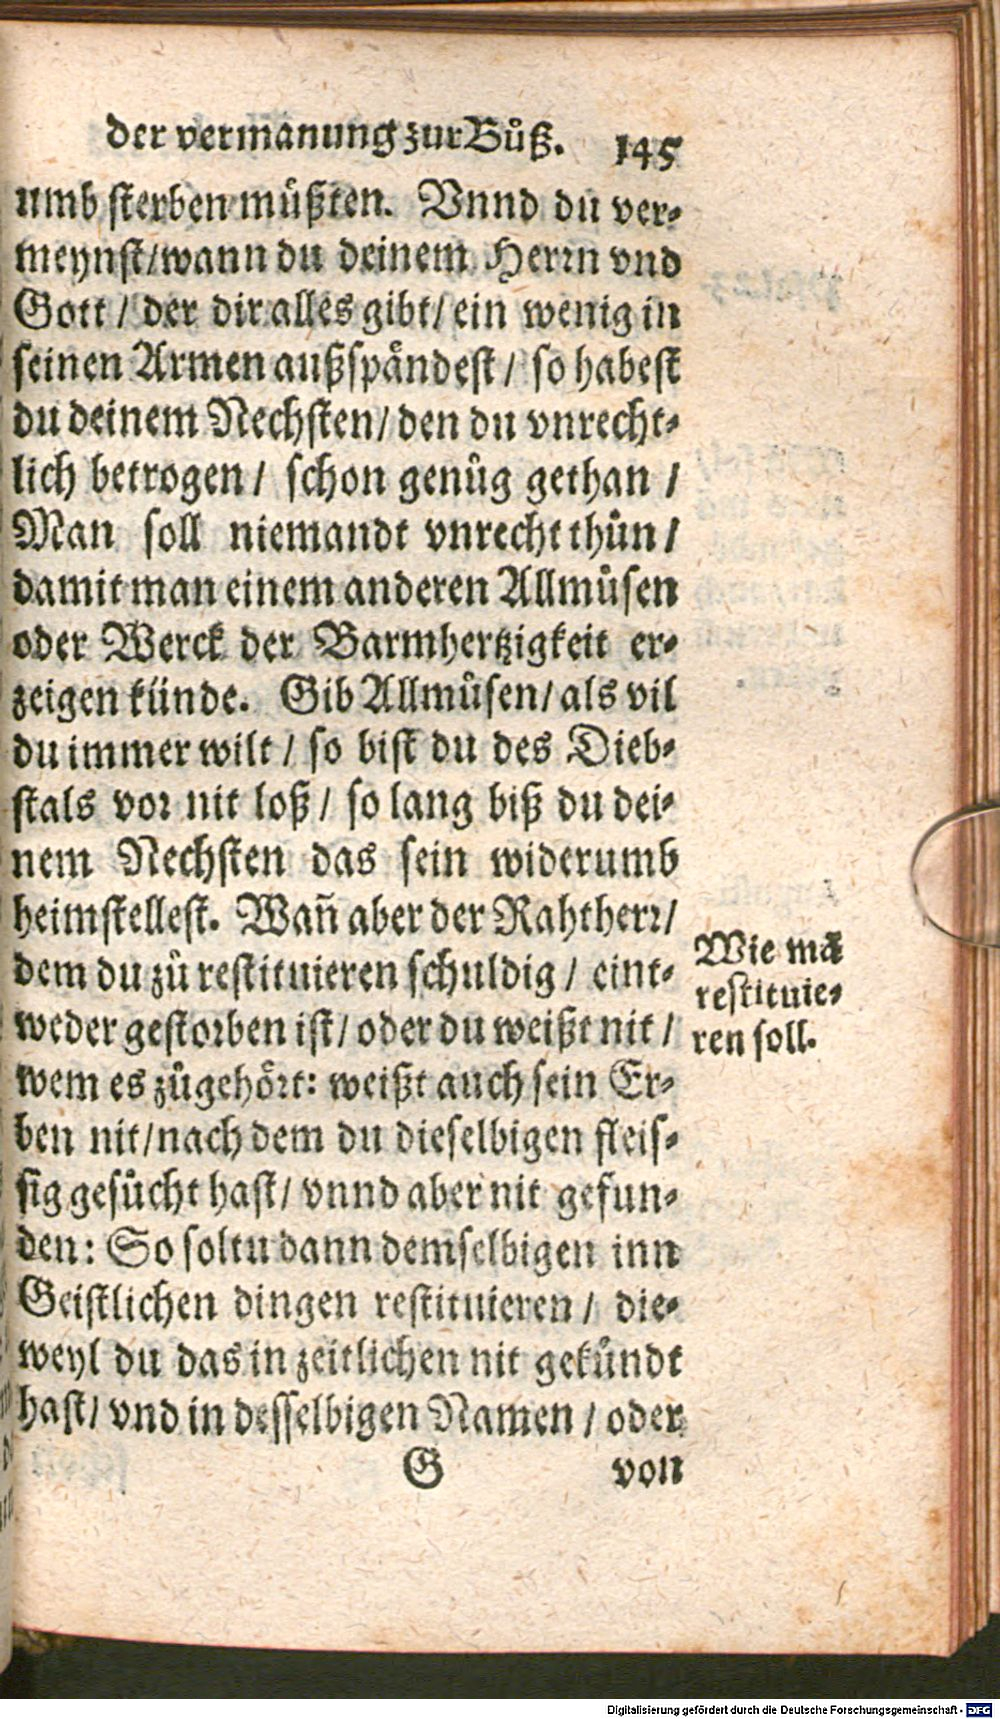 der vermanung zur Buͦß. 145
umb sterben müßten. Vnnd du ver-
meynst/wann du deinem Herrn vnd
Gott / der dir alles gibt/ ein wenig in
seinen Armen außspändest / so habest
du deinem Nechsten/ den du vnrecht-
lich betrogen / schon genuͦg gethan /
Man soll niemandt vnrecht thuͦn /
damit man einem anderen Allmuͦsen
oder Werck der Barmhertzigkeit er-
zeigen künde. Gib Allmuͦsen/ als vil
du immer wilt / so bist du des Dieb-
stals vor nit loß / so lang biß du dei-
nem Nechsten das sein widerumb
heimstellest. Wañ aber der Rahtherr/
dem du zuͦ restituieren schuldig / eint-
weder gestorben ist/ oder du weißt nit /
wem es zuͦgehört: weißt auch sein Er-
ben nit/nach dem du dieselbigen fleis-
sig gesuͦcht hast/ vnnd aber nit gefun-
den: So soltu dann demselbigen inn
Geistlichen dingen restituieren / die-
weyl du das in zeitlichen nit gekündt
hast/ vnd in desselbigen Namen / oder
G von
Wie mā
restituie-
ren soll.
Digitalisierung gefördert durch die Deutsche Forschungsgemeinschaft - DFG